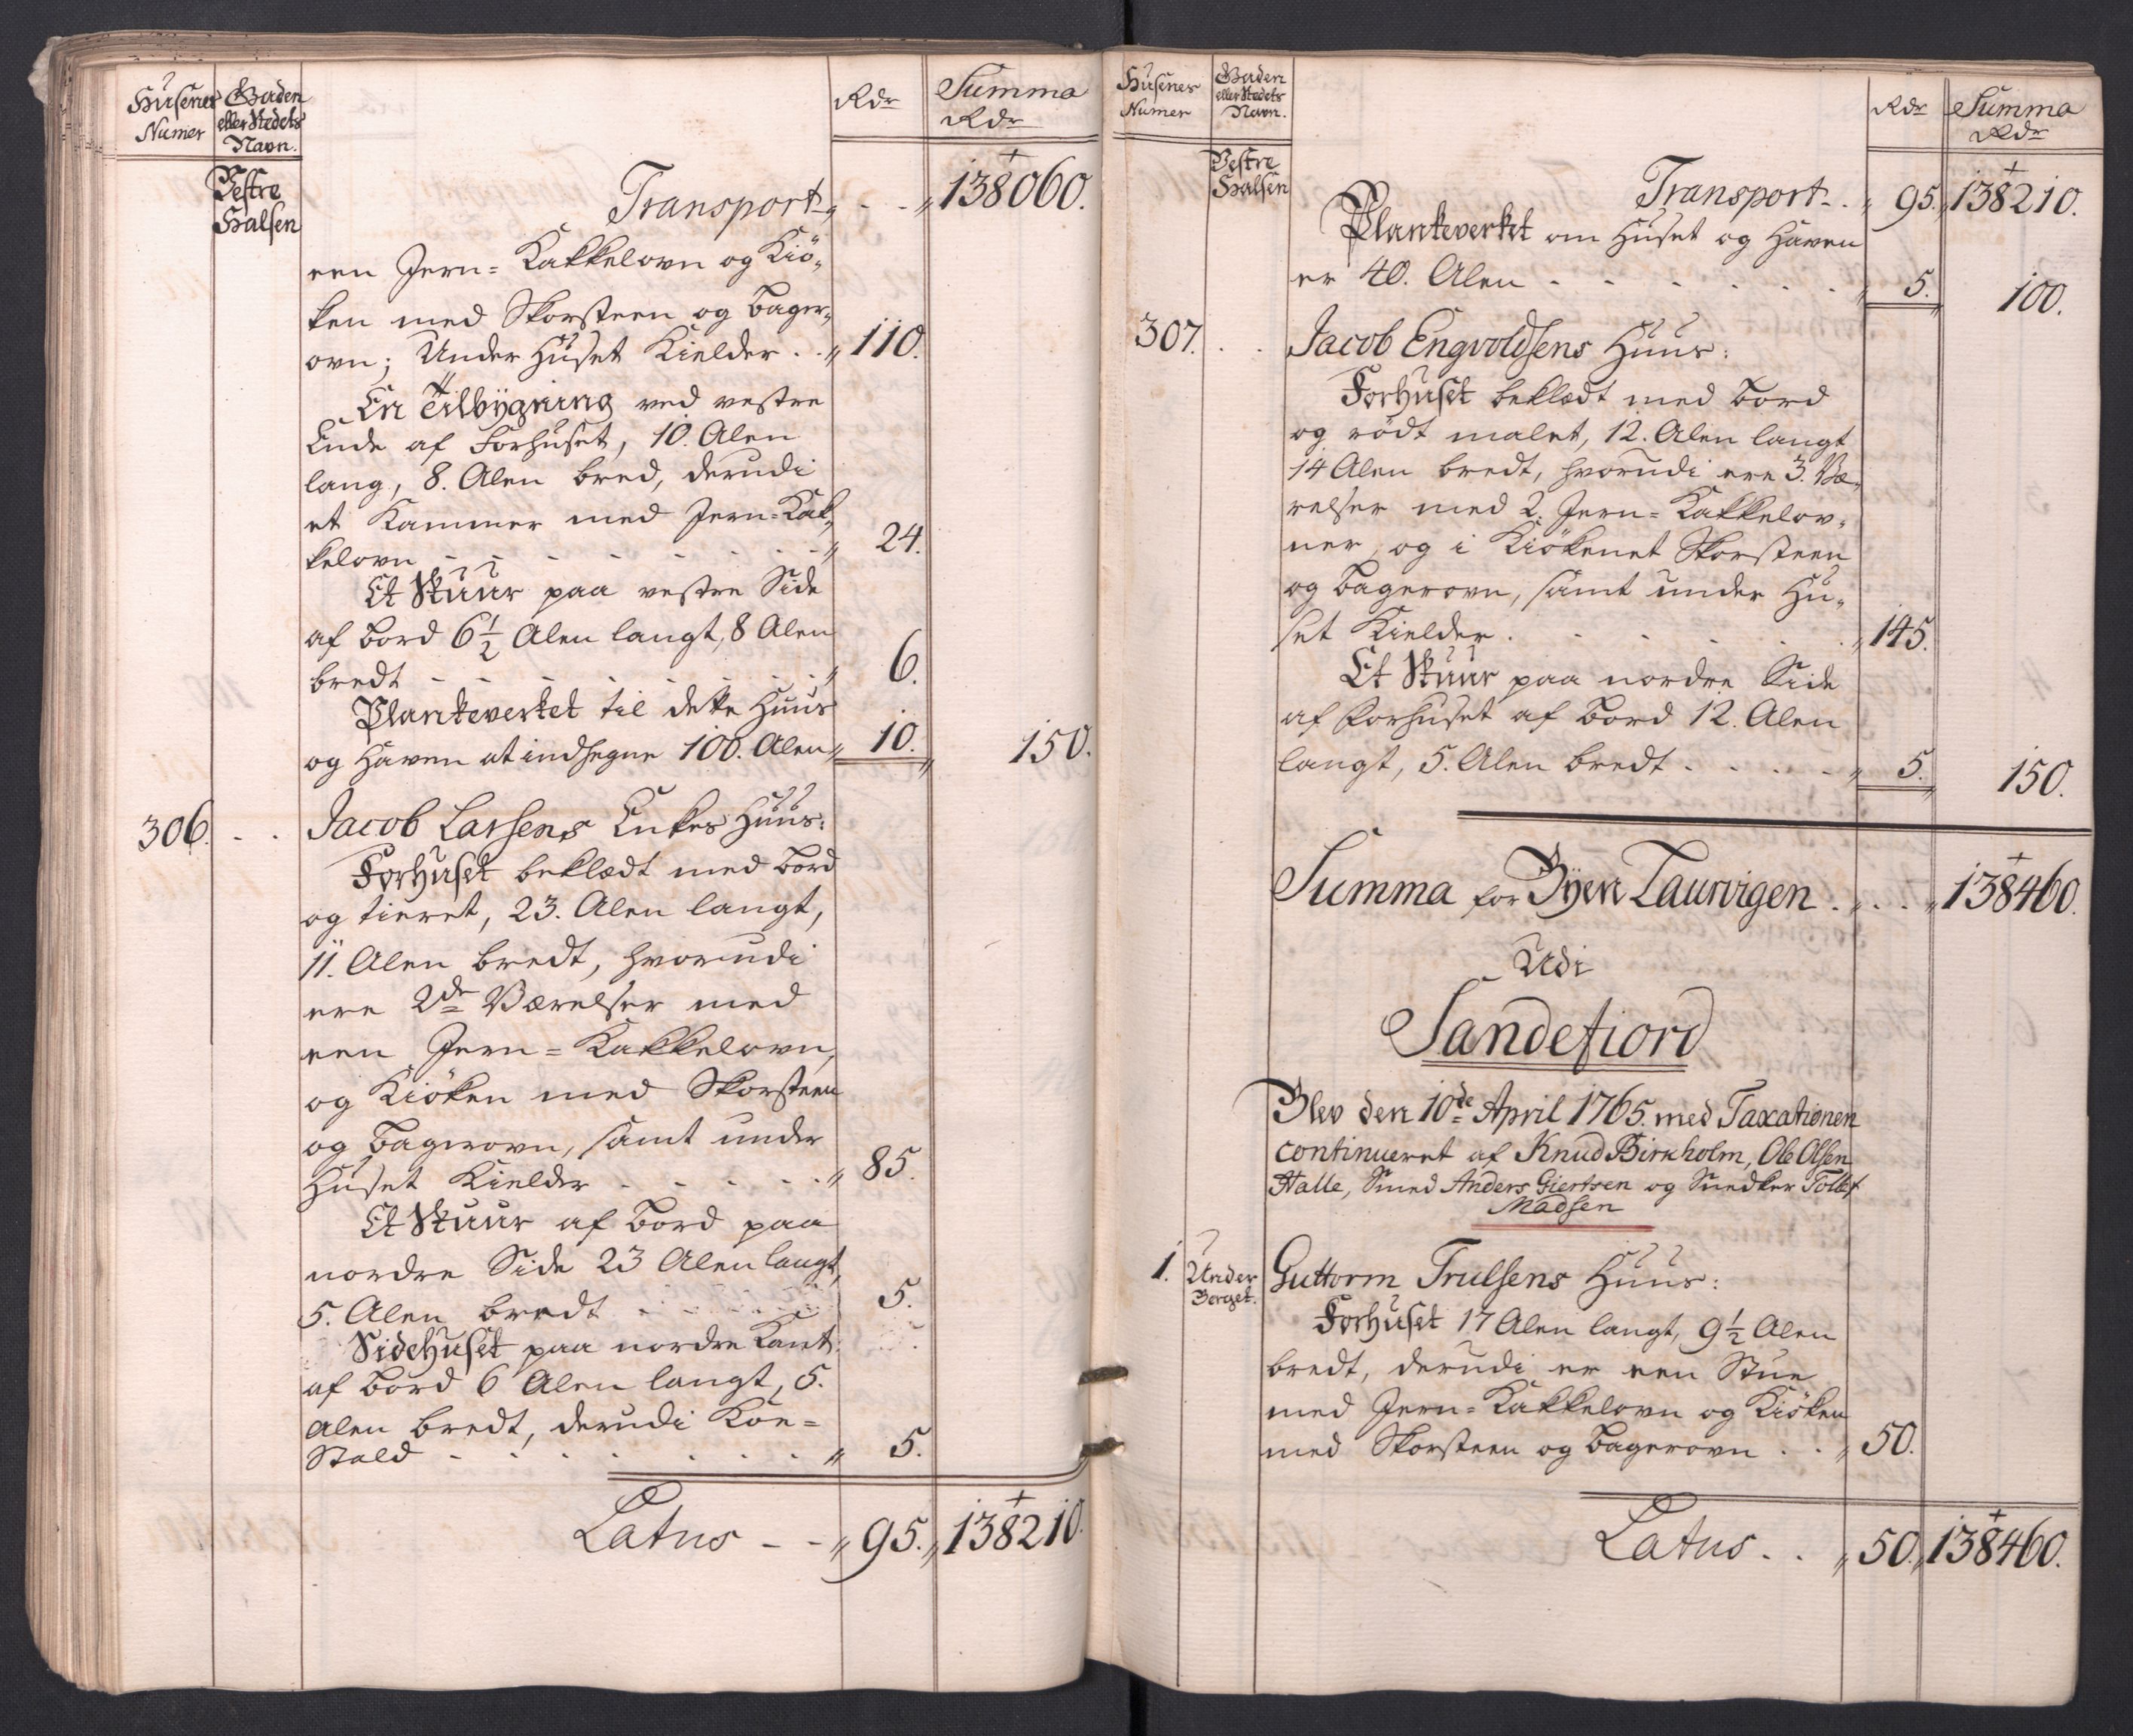 Husenes Numer
Gaden eller Stedets Navn.
Rdr
Summa Rdr
Vestre Halsen
Transport „ - - „ 138060.
een Jern= Kakkelovn og Kiö„
ken med Skorsteen og Bager„
ovn; Under Huset Kielder . . „ 110.
En Tilbÿgning ved vestre
Ende af Forhuset, 10. Alen
lang, 8. Alen bred, derudi
et Kammer med Jern=Kak„
kelovn - - - - - - - „ 24.
Et Skuur paa vestre Side
af Bord 6 1/2 Alen langt, 8 Alen
bredt - - - - - - - „ 6.
Plankeverket til dette Huus
og Haven at indhegne 100. Alen „ 10. „ 150.
306. . . Jacob Larsens Enkes Huus:
Forhuset beklædt med Bord
og tieret, 23. Alen langt,
11. Alen bredt, hvorudi
ere 2de Værelser med
een Jern= Kakkelovn,
og Kiöken med Skorsteen
og Bagerovn, samt under
Huset Kielder - - - - - „ 85.
Et Skuur af Bord paa
nordre Side 23 Alen langt,
5. Alen bredt - - - - - 5.
SideHuset paa nordre Kant
af Bord 6 Alen langt, 5.
Alen bredt, derudi Koe=
Stald - - - - - - - „ 5.
Latus - - „ 95. „ 138210.
Husenes Numer
Gaden eller Stedets Navn.
Rdr
Summa Rdr
Vestre Halsen
Transport - . „ 95. „ 138210.
Plankeverket om Huset og Haven
er 40. Alen - - - - - - „ 5. „ 100.
307. . . Jacob Engvoldsens Huus:
Forhuset beklædt med Bord
og rödt malet, 12. Alen langt
14 Alen bredt, hvorudi ere 3. Væ„
relser med 2. Jern= Kakkelov„
ner, og i Kiökenet Skorsteen
og Bagerovn, samt under Hu„
set Kielder. - - - - - „ 145.
Et Skuur paa nordre Side
af Forhuset af Bord 12. Alen
langt, 5. Alen bredt - - - - - „ 5. „ 150.
Summa for Bÿen Laurvigen . „ . . „ 138460.
Udi
Sandefiord
Blev den 10de April 1765. med Taxationen
continueret af Knud Birkholm, Ole Olsen
Halle, Smed Anders Giertsen og Snedker Tollef
Madsen
1. Under Berget. Guttorm Trulsens Huus:
Forhuset 17 Alen langt, 9 1/2 Alen
bredt, derudi er een Stue
med Jern= Kakkelovn og Kiöken
med Skorsteen og Bagerovn . . „ 50.
Latus . . „ 50. „ 138460.